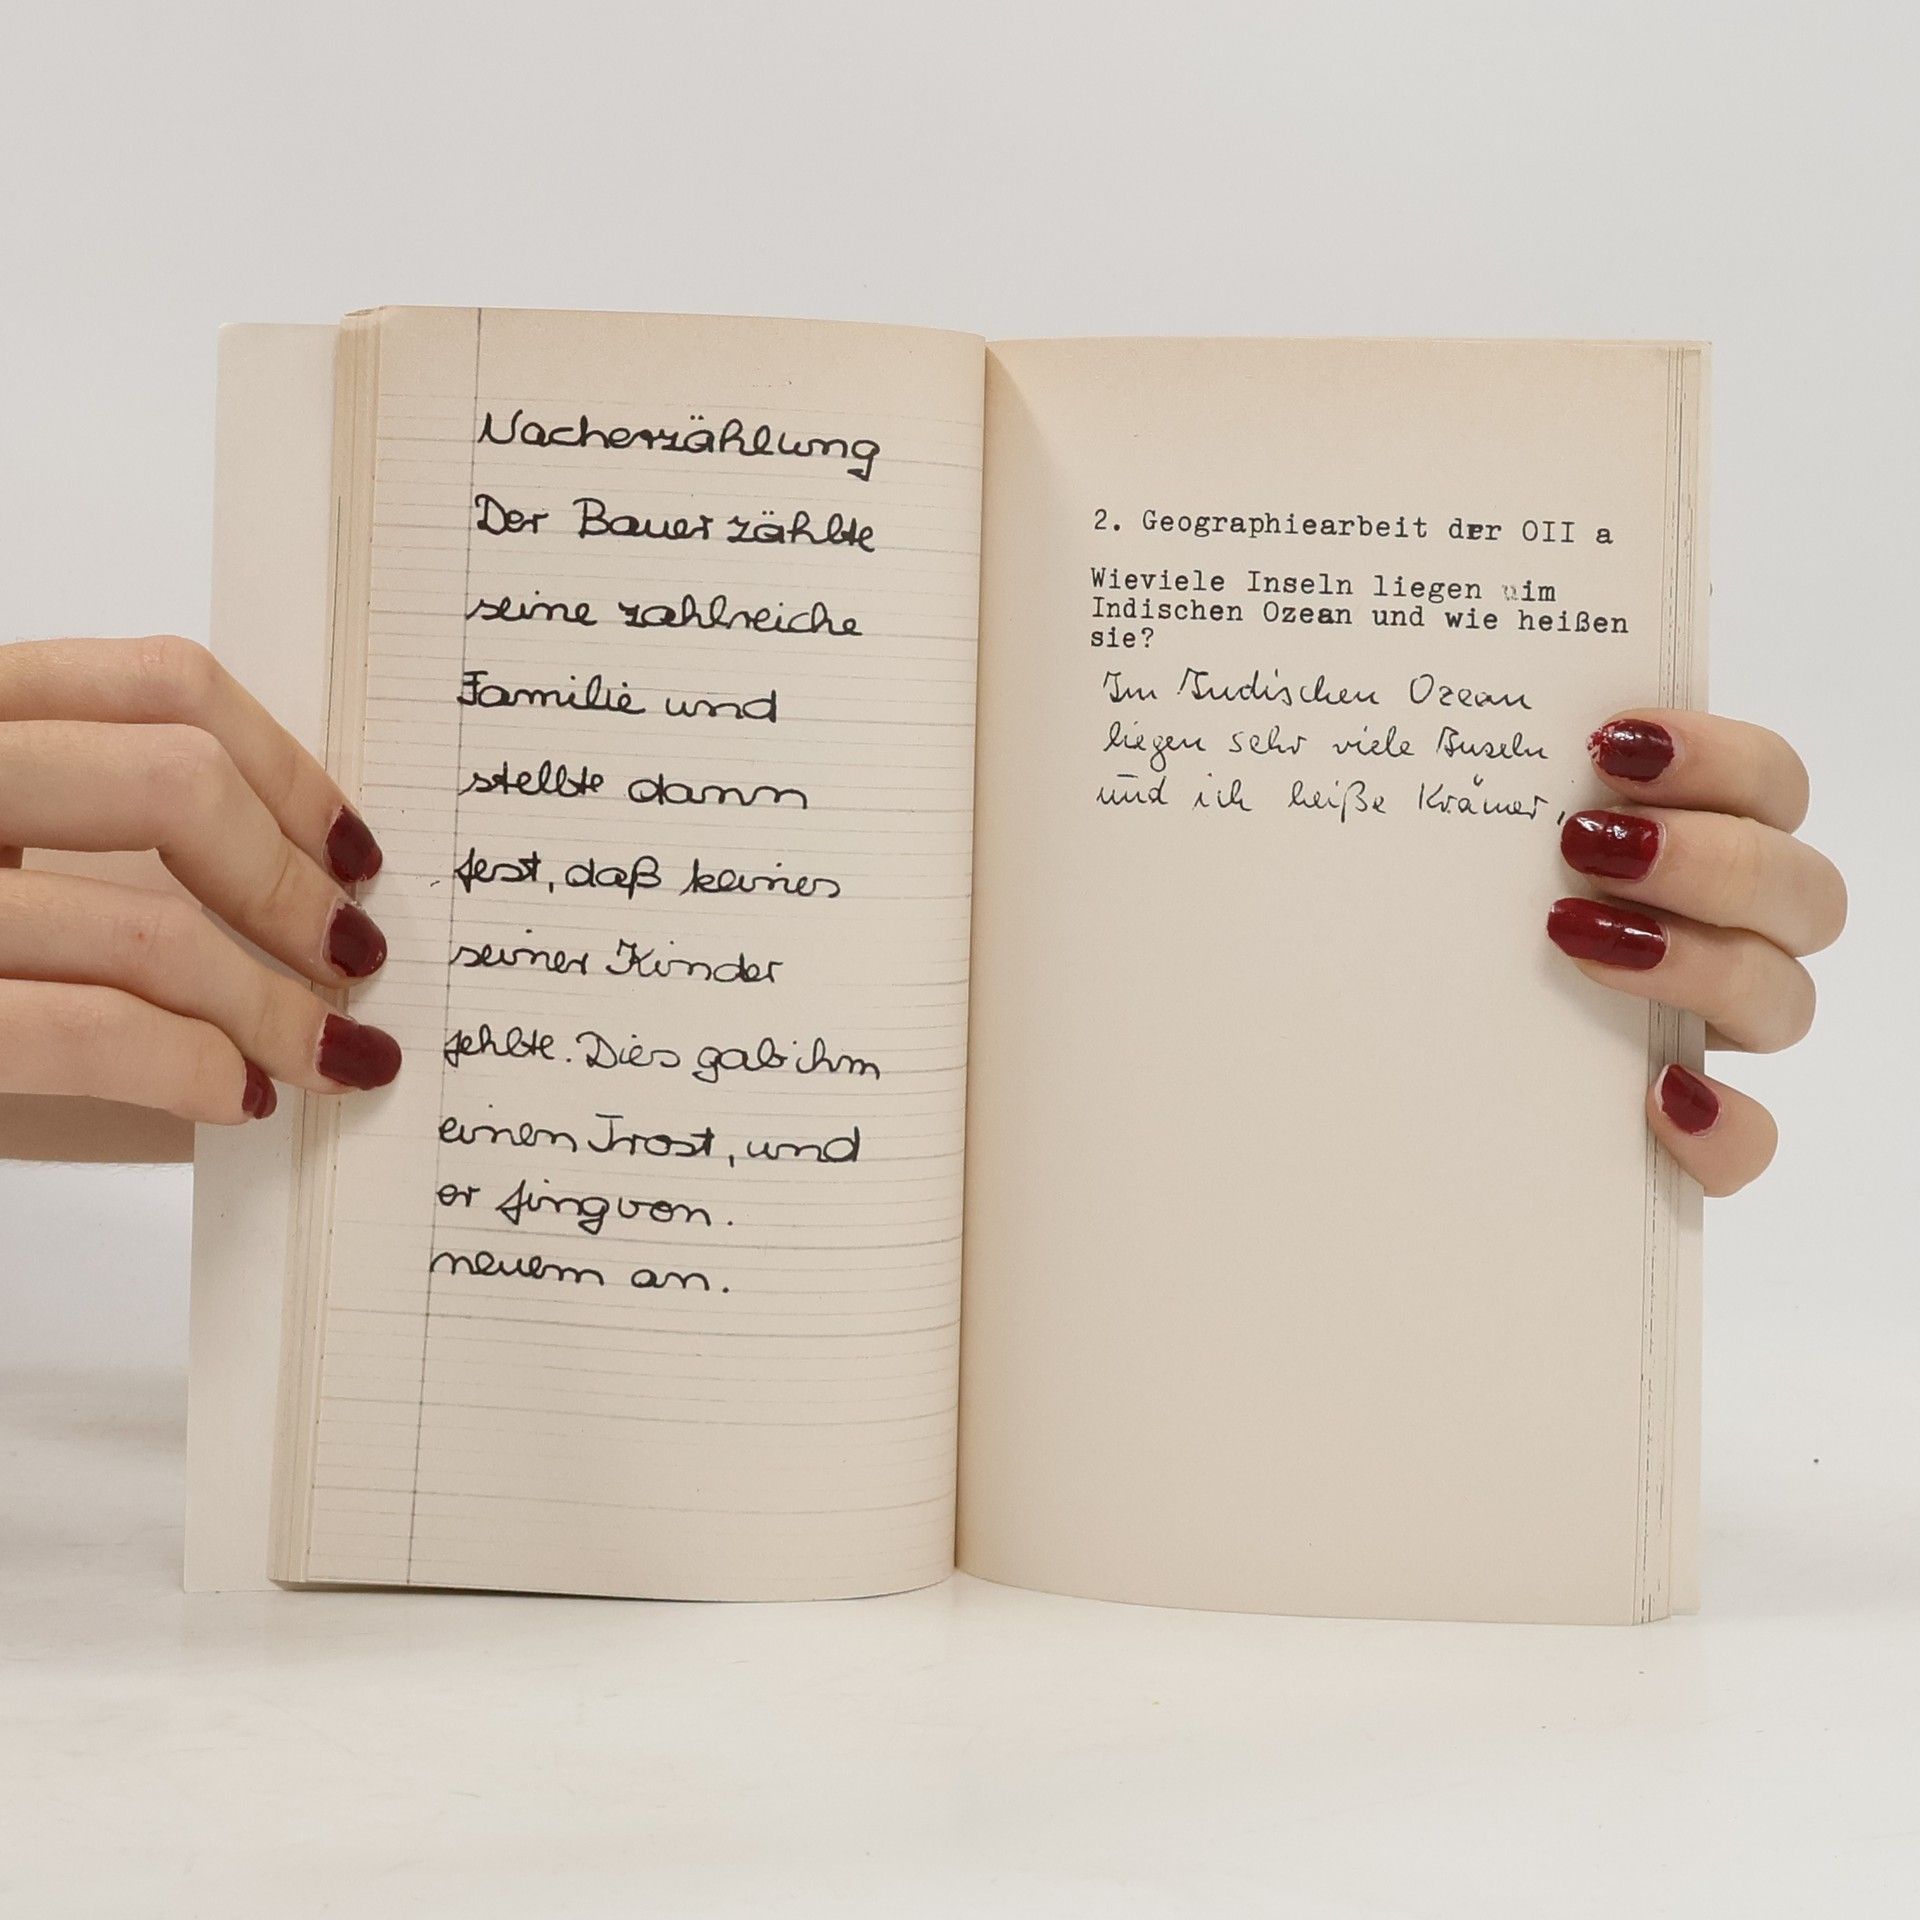 Nacherzählung
Der Bauer zählte
seine zahlreiche
Familie und
stellte dann
fest, daß keines
seiner Kinder
fehlte. Dies gab ihm
einen Trost, und
er fing von.
neuem an.
2. Geographiearbeit der OII a
Wieviele Inseln liegen im
Indischen Ozean und wie heißen
sie?
Im Indischen Ozean
liegen sehr viele Inseln
und ich heiße Krämer,